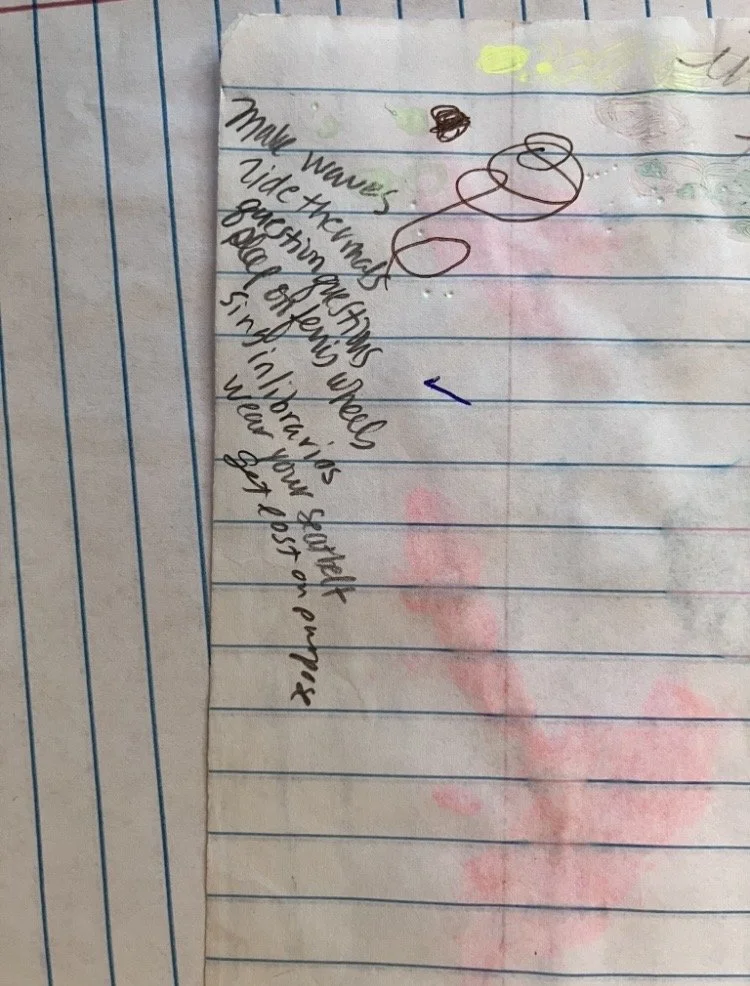 make waves
ride thermals
question questions
on ferris wheels
sing in libraries
wear your seatbelt
get lost on purpose